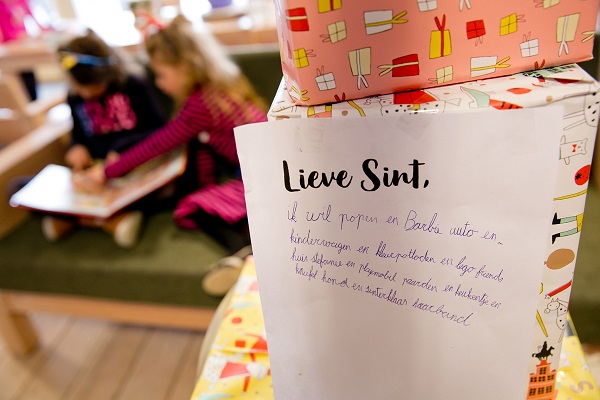 Lieve Sint,
ik wil popen en Barbie auto en
kinderwagen en kleurpotloden en lego friends
huis stefanie en playmobil paarden en keukentje en
knuffel hond en sinterklaas haarband